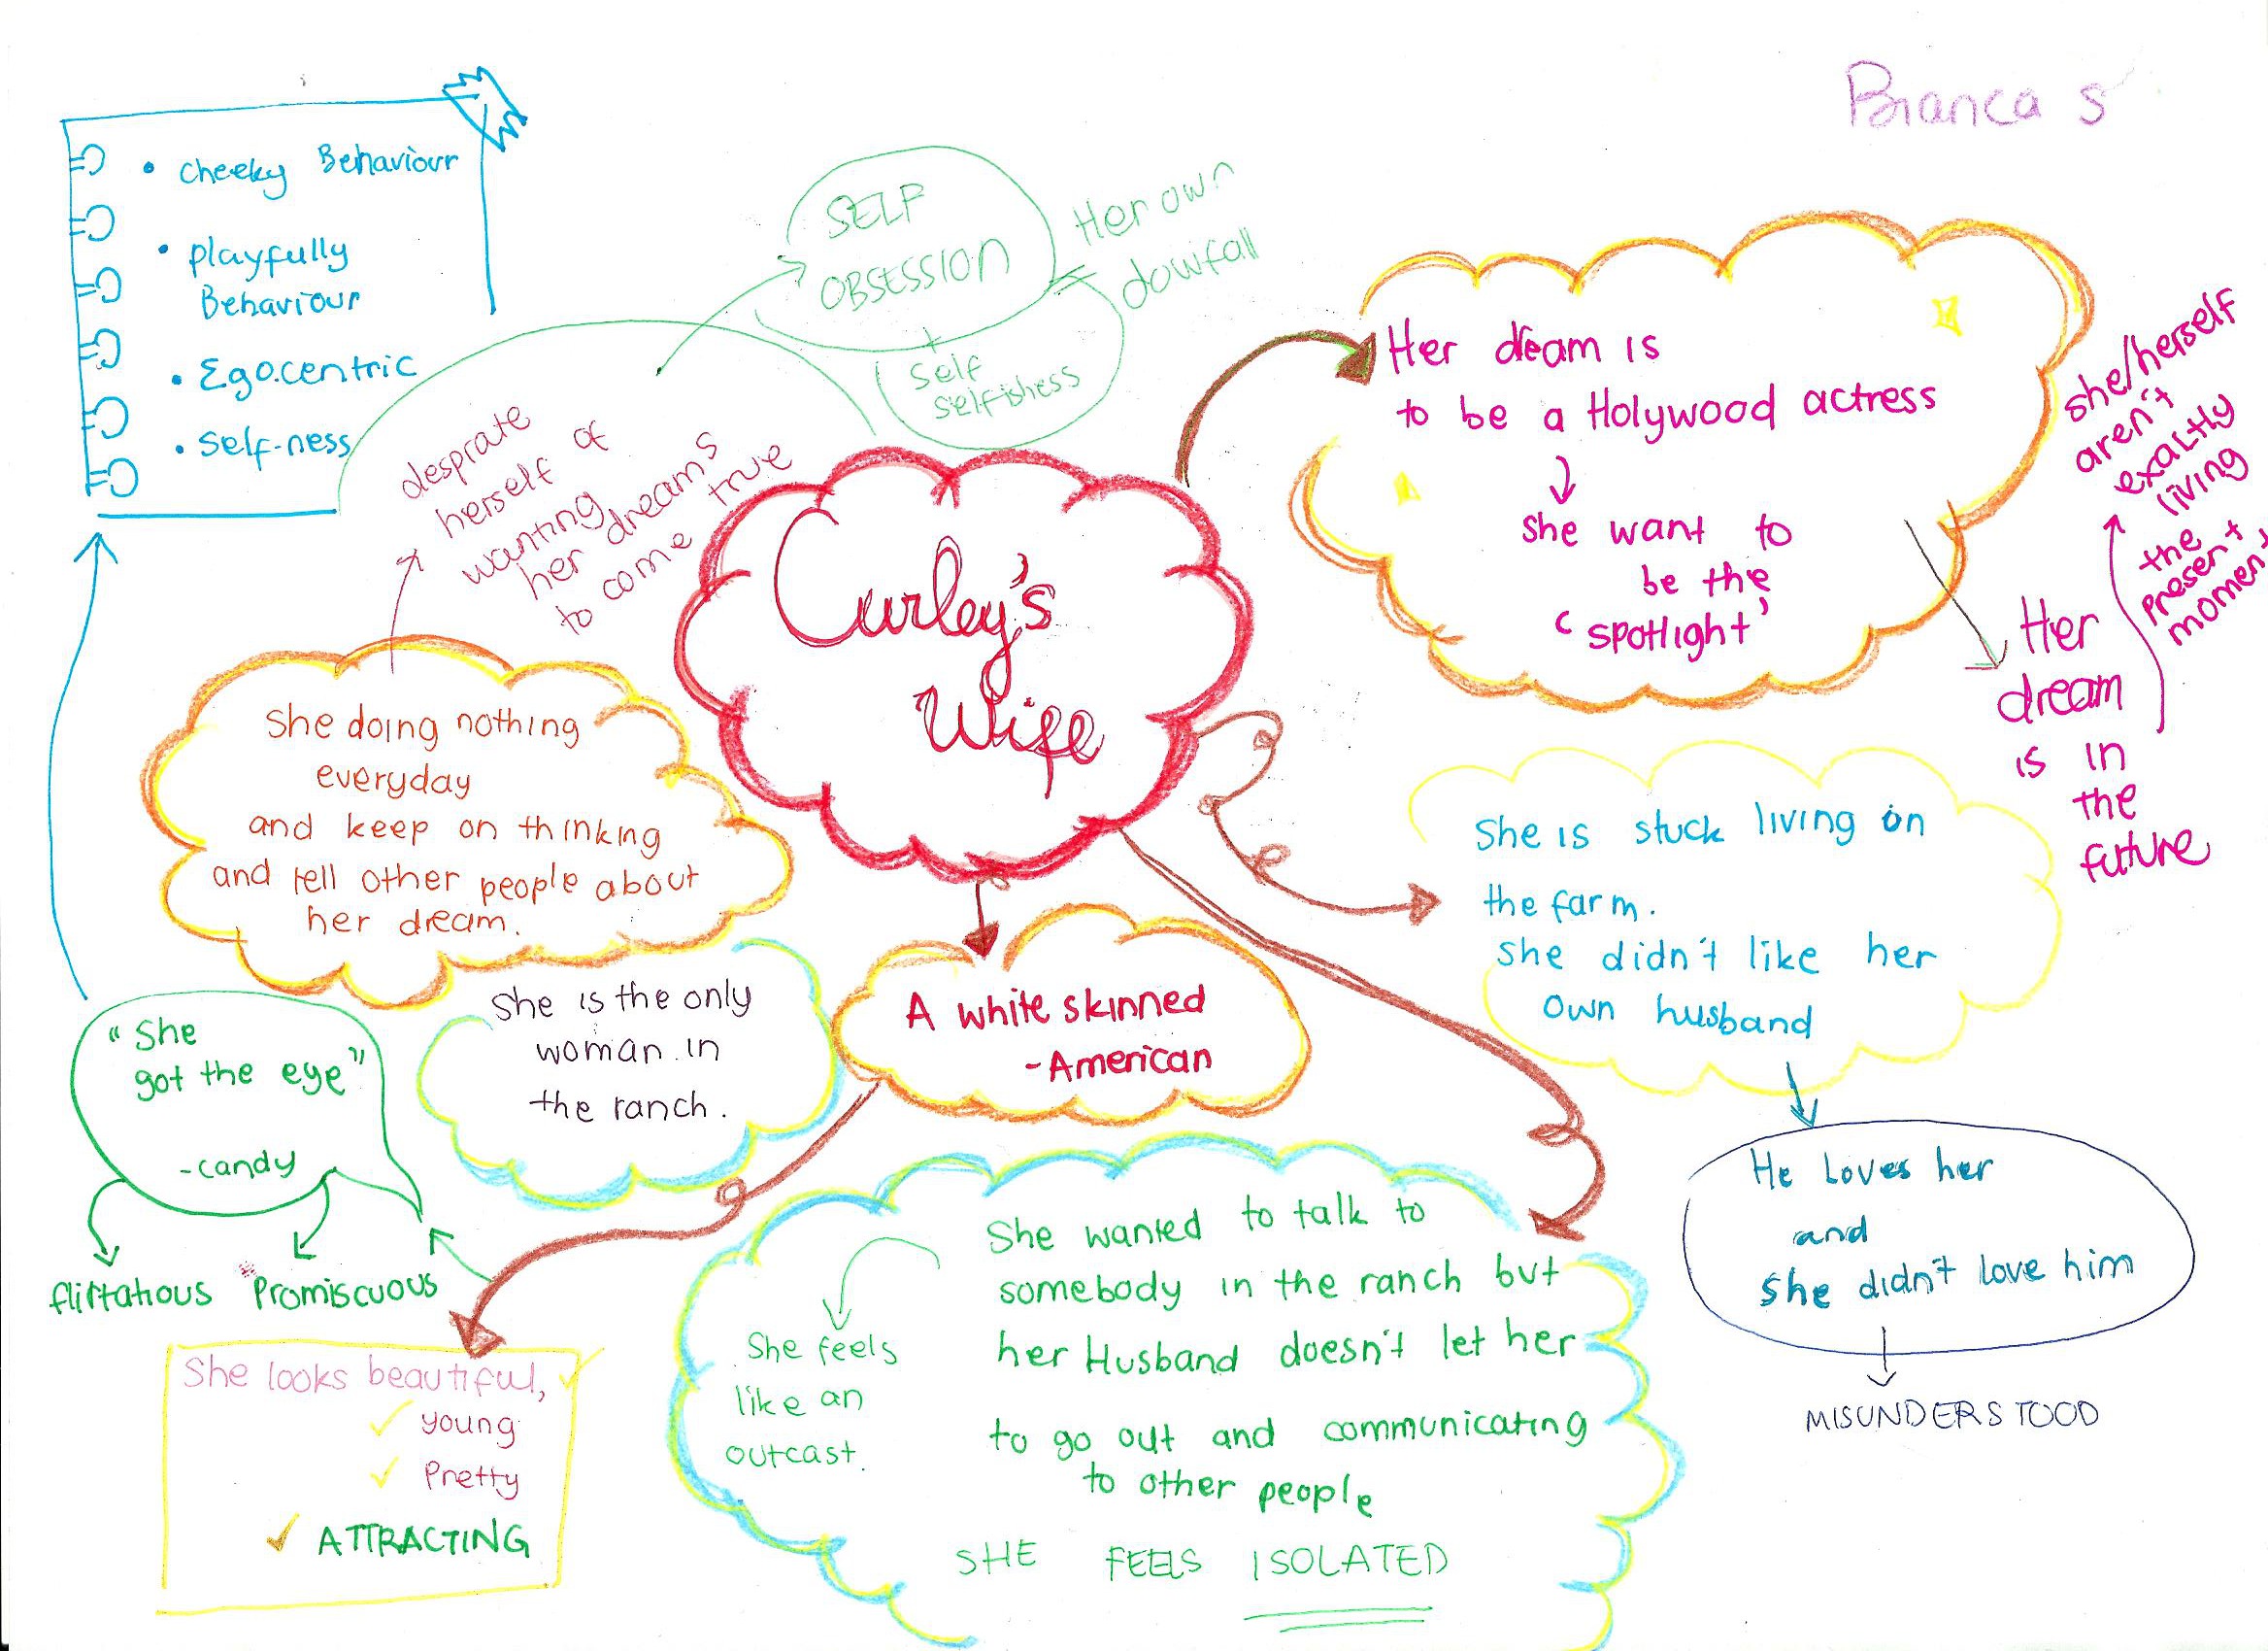 Bianca S
• Cheeky Behaviour
• Playfully
Behaviour
• Egocentric
• Self-ness
SELF
OBSESSION
+
Self
selfishess
Her own
dowfall
desprate
herself of
wanting
her dreams
to come true
Curley's
Wife
Her dream is
to be a Holywood actress
she want to
be the
'spotlight'
Her
dream
is in
the
future
she/herself
aren't
exaltly
living
the
present
moment
She doing nothing
everyday
and keep on thinking
and tell other people about
her dream.
She is stuck living on
the farm.
She didn't like her
own husband
He Loves her
and
She didn't love him
MISUNDERSTOOD
"She
got the eye"
-candy
flirtatious Promiscuous
She is the only
woman in
the ranch.
A white skinned
-American
She looks beautiful,
young
Pretty
ATTRACTING
She wanted to talk to
somebody in the ranch but
her Husband doesn't let her
to go out and communicating
to other people
She feels
like an
outcast.
SHE FEELS ISOLATED